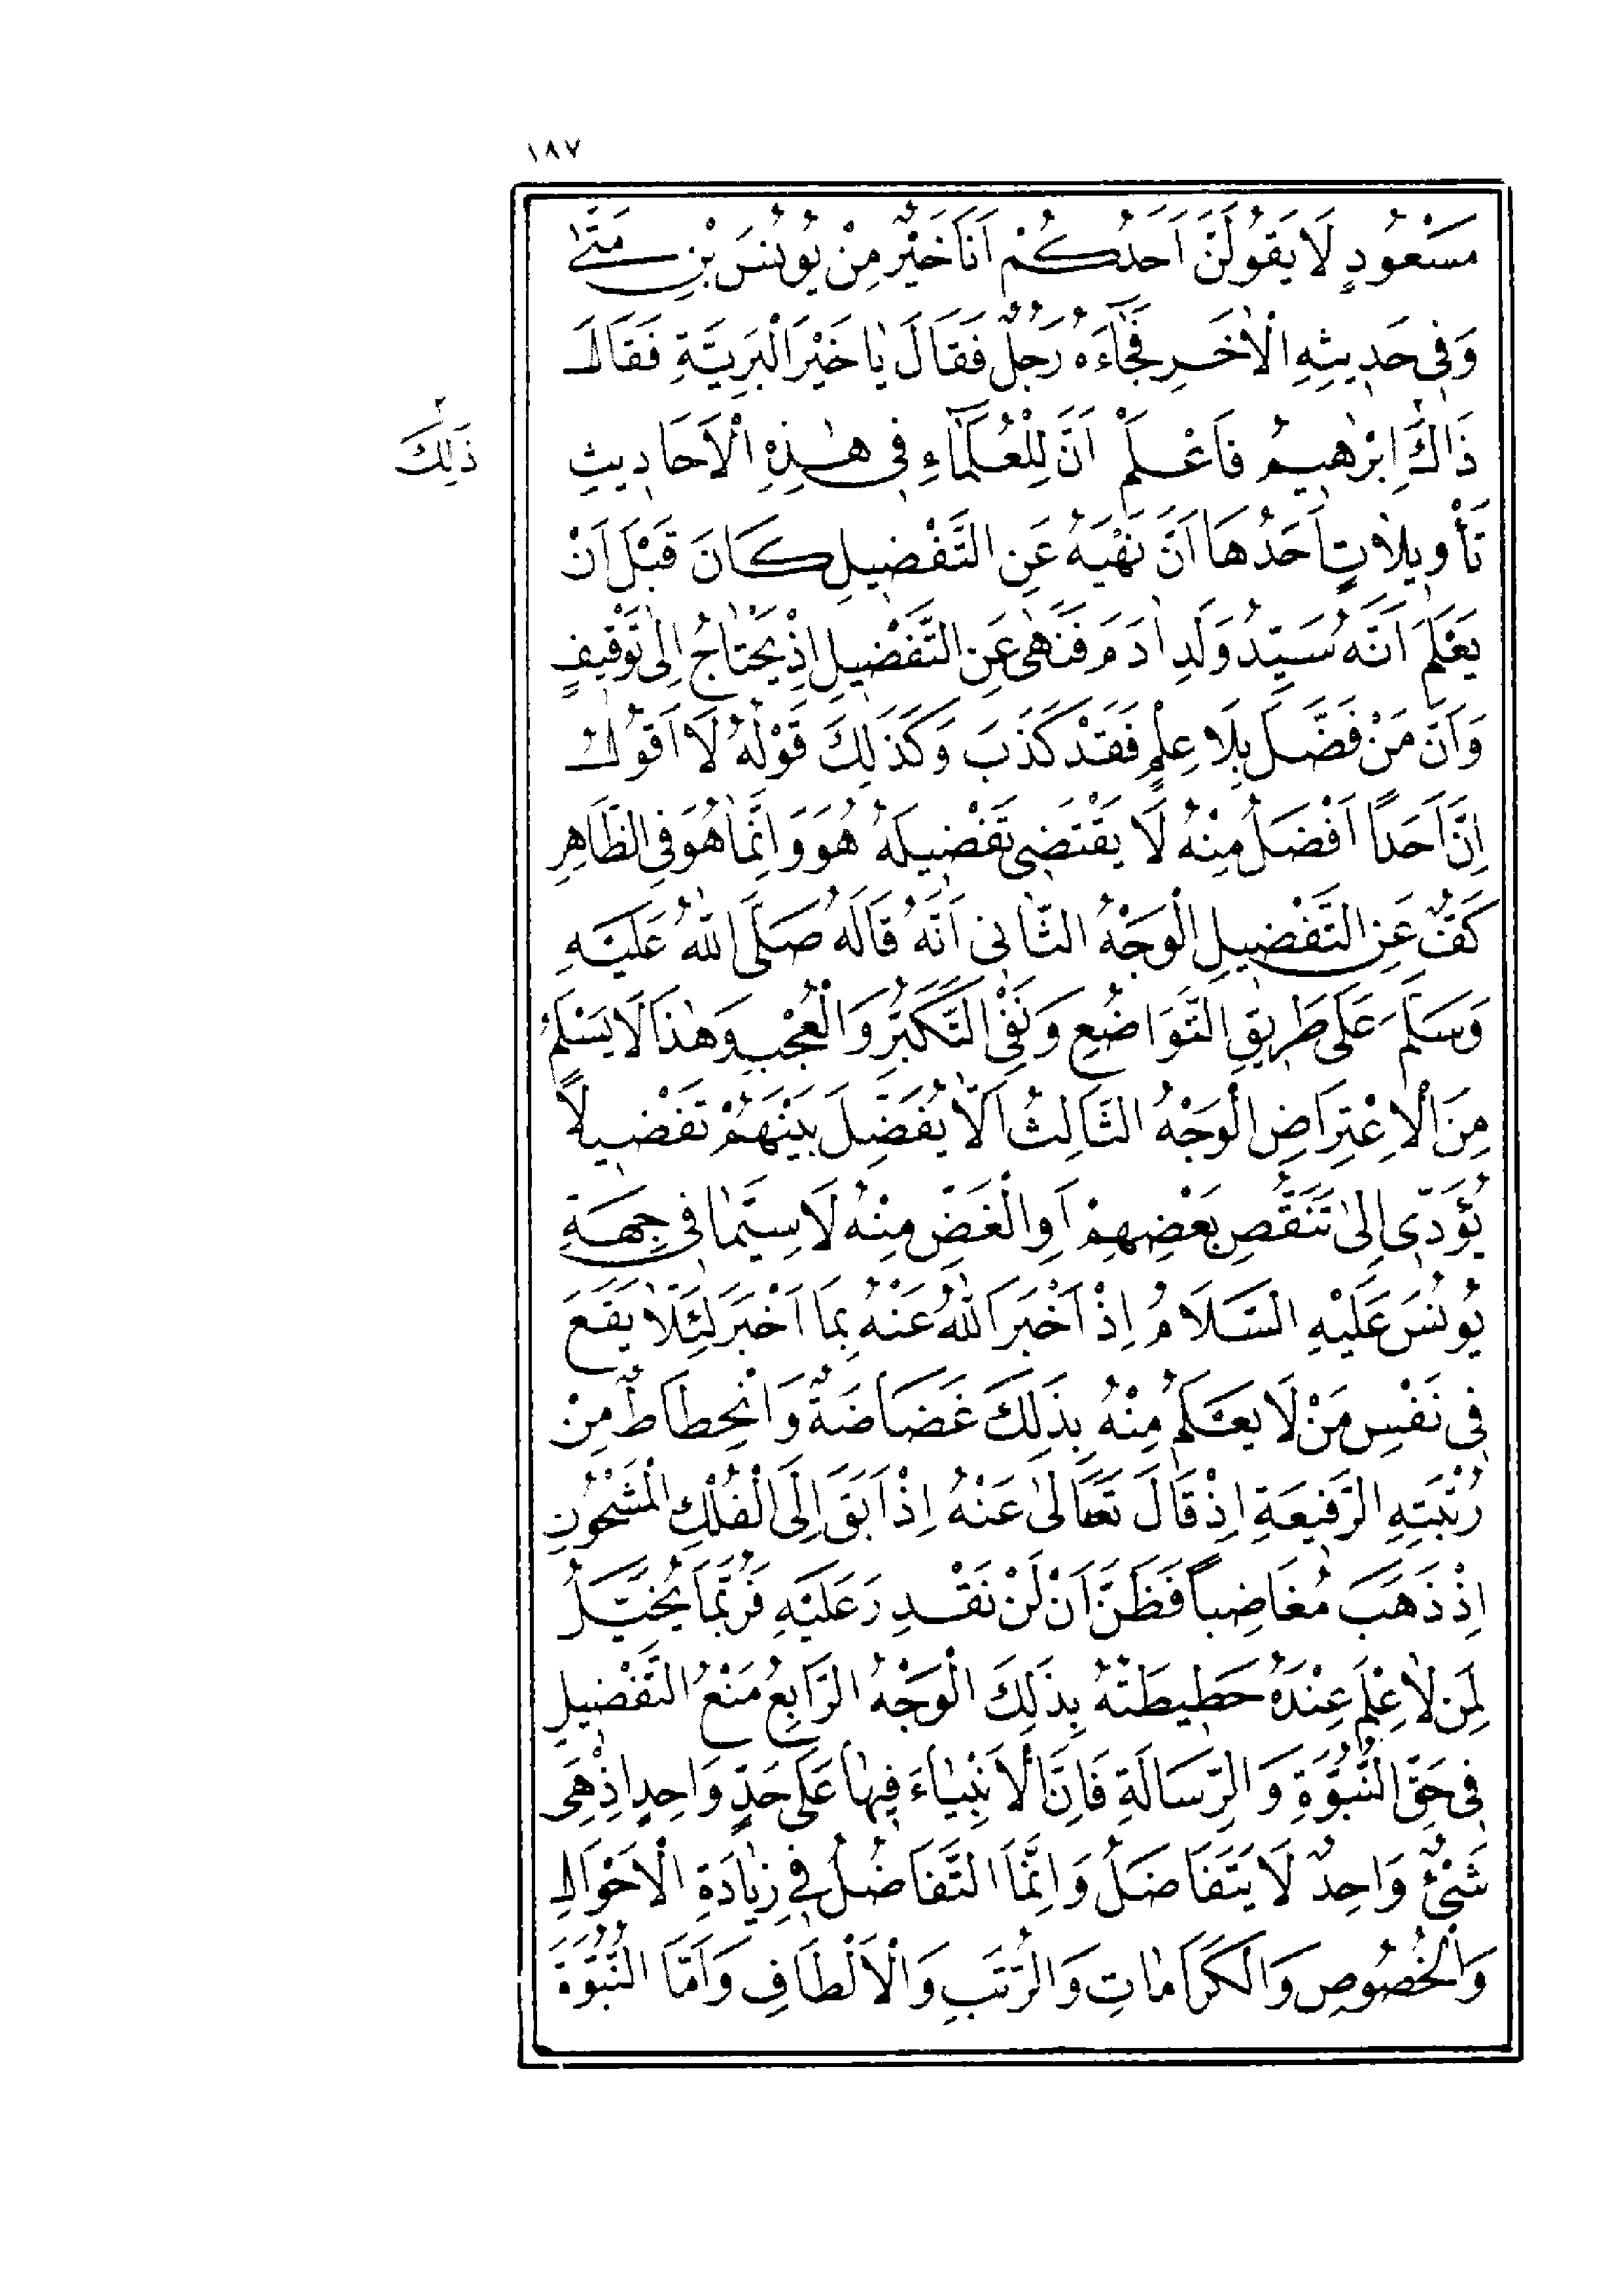 ١٨٧
مَسْعُودٍ لَا يَقُولَنَّ اَحَدُكُمْ اَنَا خَيْرٌ مِنْ يُونُسَ بْنِ مَتّٰى
وَفِى حَدِيثِهِ الْاٰخَرِ فَجَآءَهُ رَجُلٌ فَقَالَ يَا خَيْرَ الْبَرِيَّةِ فَقَالَ
ذَاكَ٢ اِبْرٰهِيمُ فَاعْلَمْ اَنَّ لِلْعُلَمَآءِ فِى هٰذِهِ الْاَحَادِيثِ
٢ ذَلِكَ
تَأْوِيلَاتٍ اَحَدُهَا اَنَّ نَهْيَهُ عَنِ التَّفْضِيلِ كَانَ قَبْلَ اَنْ
يَعْلَمَ اَنَّهُ سَيِّدُ وَلَدِ اٰدَمَ فَنَهٰى عَنِ التَّفْضِيلِ اِذْ يَحْتَاجُ اِلٰى تَوْقِيفٍ
وَاَنَّ مَنْ فَضَّلَ بِلَا عِلْمٍ فَقَدْ كَذَبَ وَكَذَلِكَ قَوْلُهُ لَا اَقُولُ
اِنَّ اَحَداً اَفْضَلُ مِنْهُ لَا يَقْتَضِى تَفْضِيلَهُ هُوَ وَاِنَّمَا هُوَ فِى الظَّاهِرِ
كَفٌّ عَنِ التَّفْضِيلِ الْوَجْهُ الثَّانِى اَنَّهُ قَالَهُ صَلَّى اللّٰهُ عَلَيْهِ
وَسَلَّمَ عَلَى طَرِيقِ التَّوَاضُعِ وَنَفْىِ التَّكَبُّرِ وَالْعُجْبِ وَهٰذَا لَا يَسْلَمُ
مِنَ الْاِعْتِرَاضِ الْوَجْهُ الثَّالِثُ اَلَّا يُفَضَّلَ بَيْنَهُمْ تَفْضِيلاً
يُؤَدِّى اِلٰى تَنَقُّصِ بَعْضِهِمْ اَوِ الْغَضِّ مِنْهُ لَا سِيَّمَا فِى جِهَةِ
يُونُسَ عَلَيْهِ السَّلَامُ اِذْ اَخْبَرَ اللّٰهُ عَنْهُ بِمَا اَخْبَرَ لِئَلَّا يَقَعَ
فِى نَفْسِ مَنْ لَا يَعْلَمُ مِنْهُ بِذَلِكَ غَضَاضَةٌ وَانْحِطَاطٌ مِنْ
رُتْبَتِهِ الرَّفِيعَةِ اِذْ قَالَ تَعَالٰى عَنْهُ اِذْ اَبَقَ اِلَى الْفُلْكِ الْمَشْحُونِ
اِذْ ذَهَبَ مُغَاضِباً فَظَنَّ اَنْ لَنْ نَقْدِرَ عَلَيْهِ فَرُبَّمَا يُخَيَّلُ
لِمَنْ لَا عِلْمَ عِنْدَهُ حَطِيطَتُهُ بِذَلِكَ الْوَجْهُ الرَّابِعُ مَنْعُ التَّفْضِيلِ
فِى حَقِّ النُّبُوَّةِ وَالرِّسَالَةِ فَاِنَّ الْاَنْبِيَاءَ فِيهَا عَلَى حَدٍّ وَاحِدٍ اِذْ هِىَ
شَىْءٌ وَاحِدٌ لَا يَتَفَاضَلُ وَاِنَّمَا التَّفَاضُلُ فِى زِيَادَةِ الْاَحْوَالِ
وَالْخُصُوصِ وَالْكَرَامَاتِ وَالرُّتَبِ وَالْاَلْطَافِ وَاَمَّا النُّبُوَّةُ